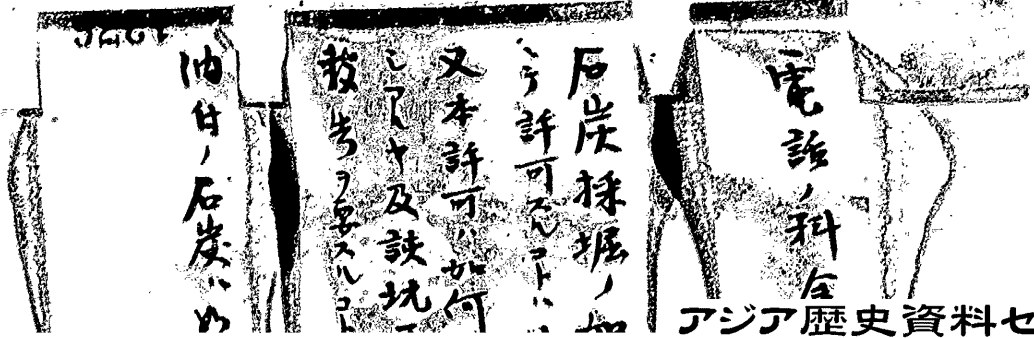 電話ノ料金
石炭採掘ノ如
シテ許可スルコトハ
又本許可ハ如何
シアルヤ及該坑
報告ヲ要スルコト
油付ノ石炭ハ如
アジア歴史資料セ